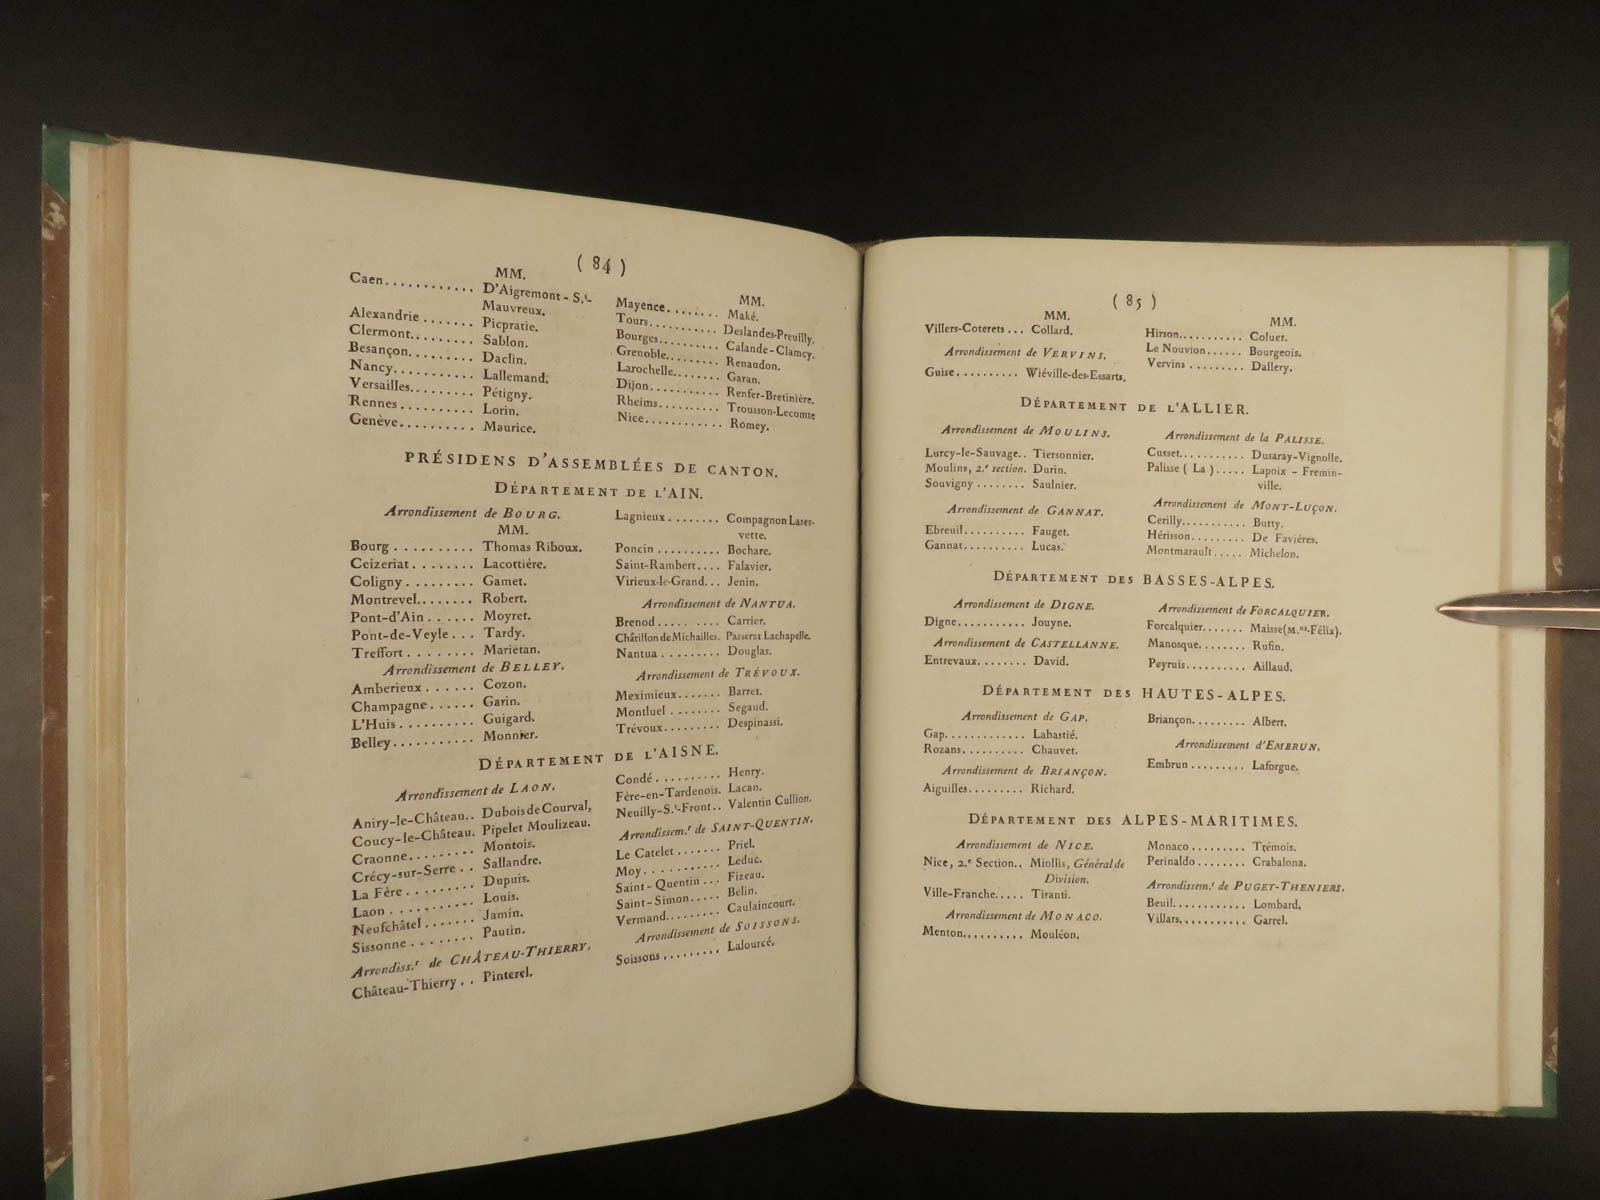 ( 84 )
MM.
Caen............ D'Aigremont-S.t-
Mauvreux.
Alexandrie....... Picpratie.
Clermont......... Sablon.
Besançon......... Daclin.
Nancy........... Lallemand.
Versailles......... Pétigny.
Rennes.......... Lorin.
Genève.......... Maurice.
MM.
Mayence........ Maké.
Tours........... Deslandes-Preuilly.
Bourges.......... Calande-Clamcy.
Grenoble......... Renaudon.
Larochelle........ Garan.
Dijon........... Renfer-Bretinière.
Rheims.......... Trousson-Lecomte
Nice............ Romey.
PRÉSIDENS D'ASSEMBLÉES DE CANTON.
DÉPARTEMENT DE L'AIN.
Arrondissement de BOURG.
MM.
Bourg .......... Thomas Riboux.
Ceizeriat ........ Lacottière.
Coligny ......... Gamet.
Montrevel........ Robert.
Pont-d'Ain ...... Moyret.
Pont-de-Veyle ... Tardy.
Treffort ......... Marietan.
Arrondissement de BELLEY.
Amberieux ...... Cozon.
Champagne...... Garin.
L'Huis .......... Guigard.
Belley........... Monnier.
Lagnieux ........ Compagnon Laser-
vette.
Poncin .......... Bochare.
Saint-Rambert.... Falavier.
Virieux-le-Grand... Jenin.
Arrondissement de NANTUA.
Brenod .......... Carrier.
Châtillon de Michailles. Passerat Lachapelle.
Nantua ......... Douglas.
Arrondissement de TRÉVOUX.
Meximieux....... Barret.
Montluel ........ Segaud.
Trévoux......... Despinassi.
DÉPARTEMENT DE L'AISNE.
Arrondissement de LAON.
Aniry-le-Château.. Dubois de Courval,
Coucy-le-Château. Pipelet Moulizeau.
Craonne......... Montois.
Crécy-sur-Serre .. Sallandre.
La Fère ......... Dupuis.
Laon ........... Louis.
Neufchâtel ....... Jamin.
Sissonne ........ Pautin.
Arrondiss.t de CHÂTEAU-THIERRY.
Château-Thierry .. Pinterel.
Condé .......... Henry.
Fère-en-Tardenois. Lacan.
Neuilly-S.t-Front.. Valentin Cullion.
Arrondissem.t de SAINT-QUENTIN.
Le Catelet ....... Priel.
Moy........... Leduc.
Saint-Quentin ... Fizeau.
Saint-Simon..... Belin.
Vermand......... Caulaincourt.
Arrondissement de SOISSONS.
Soissons ......... Lalourcé.
( 85 )
MM.
Villers-Coterets ... Collard.
Arrondissement de VERVINS.
Guise.......... Wiéville-des-Essarts.
MM.
Hirson........... Coluet.
Le Nouvion...... Bourgeois.
Vervins ......... Dallery.
DÉPARTEMENT DE L'ALLIER.
Arrondissement de MOULINS.
Lurcy-le-Sauvage.. Tiersonnier.
Moulins, 2.e section. Durin.
Souvigny ........ Saulnier.
Arrondissement de GANNAT.
Ebreuil.......... Fauget.
Gannat.......... Lucas.
Arrondissement de la PALISSE.
Cusset.......... Dusaray-Vignolle.
Palisse ( La )..... Lapoix - Fremin-
ville.
Arrondissement de MONT-LUÇON.
Cerilly........... Butty.
Hérisson......... De Favières.
Montmarault..... Michelon.
DÉPARTEMENT DES BASSES-ALPES.
Arrondissement de DIGNE.
Digne........... Jouyne.
Arrondissement de CASTELLANNE.
Entrevaux........ David.
Arrondissement de FORCALQUIER.
Forcalquier....... Maisse(M.us-Félix).
Manosque........ Rufin.
Peyruis.......... Aillaud.
DÉPARTEMENT DES HAUTES-ALPES.
Arrondissement de GAP.
Gap............. Labastié.
Rozans.......... Chauvet.
Arrondissement de BRIANÇON.
Aiguilles......... Richard.
Briançon......... Albert.
Arrondissement d'EMBRUN.
Embrun ......... Laforgue.
DÉPARTEMENT DES ALPES-MARITIMES.
Arrondissement de NICE.
Nice, 2.e Section.. Miollis, Général de
Division.
Ville-Franche..... Tiranti.
Arrondissement de MONACO.
Menton.......... Mouléon.
Monaco......... Trémois.
Perinaldo ........ Crabalona.
Arrondissem.t de PUGET-THENIERS.
Beuil............ Lombard.
Villars........... Garrel.